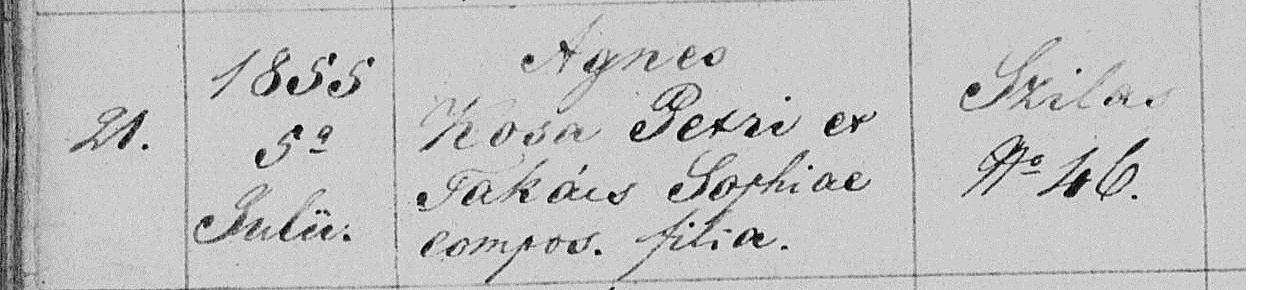 21.
1855
5a
Julii.
Agnes
Kosa Petri et
Takács Sophiae
compos. filia.
Szilas
No 46.